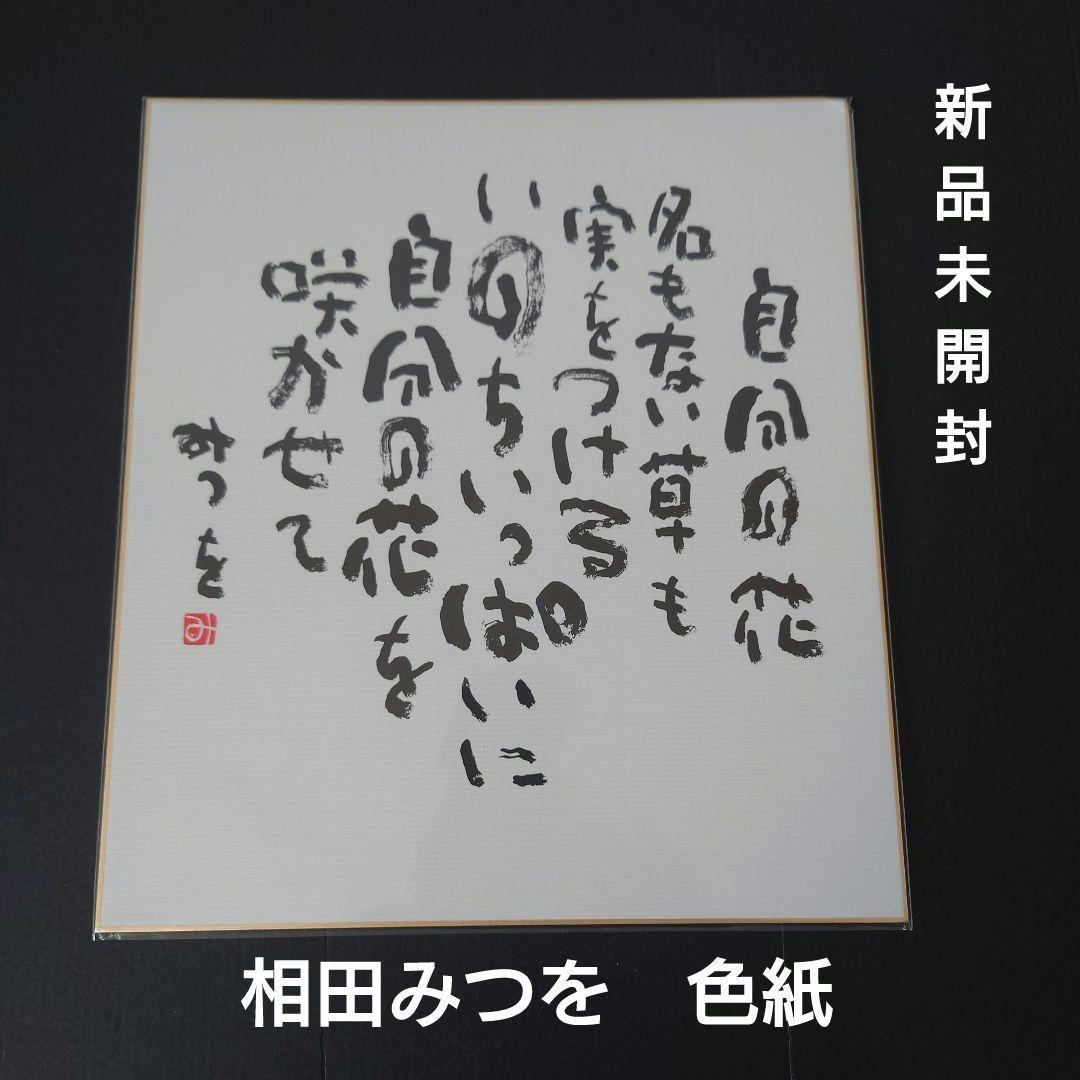 自分の花
名もない草も
実をつける
いのちいっぱいに
自分の花を
咲かせて
みつを
み
新品未開封
相田みつを　色紙